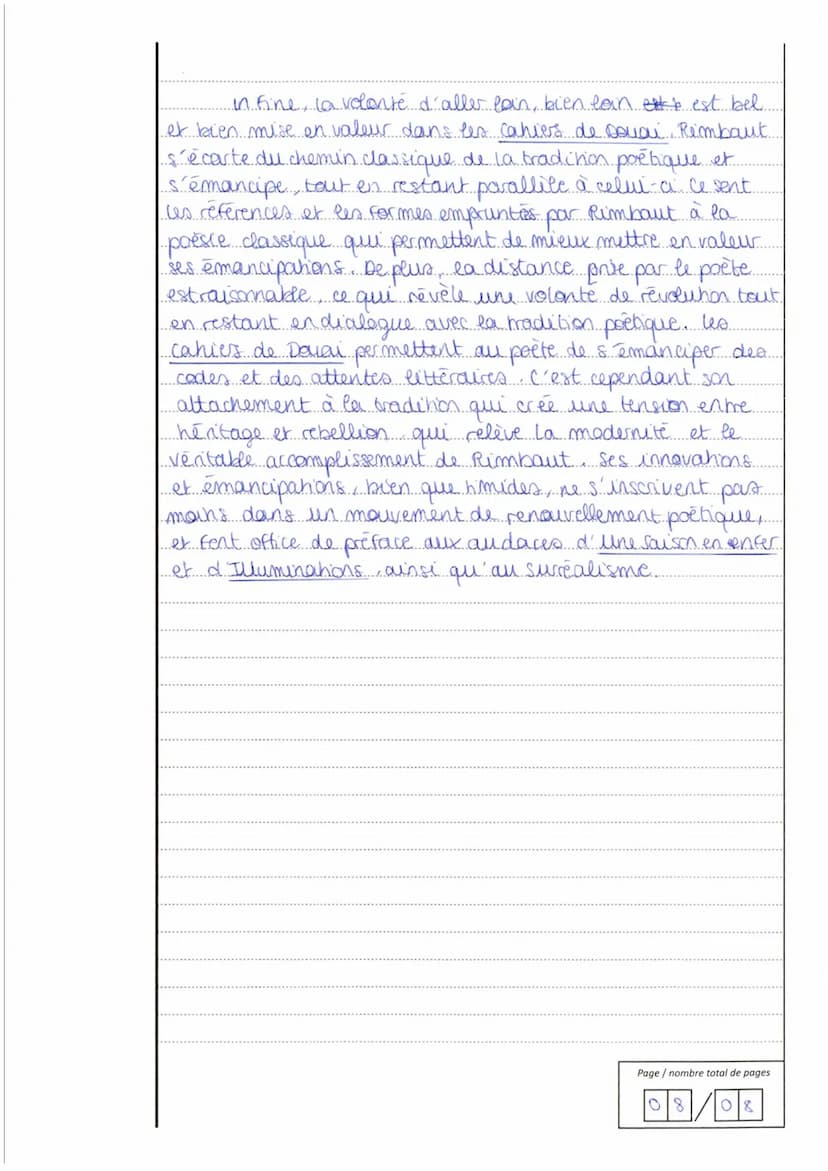 In fine, la volonté d'aller loin, bien loin est bel
et bien mise en valeur dans les Cahiers de Douai. Rimbaut
s'écarte du chemin classique de la tradition poétique et
s'émancipe, tout en restant parallèle à celui-ci. Ce sont
les références et les formes empruntés par Rimbaut à la
poésie classique qui permettent de mieux mettre en valeur
ses émancipations. De plus, la distance prise par le poète
est raisonnable, ce qui révèle une volonté de révolution tout
en restant en dialogue avec la tradition poétique. Les
Cahiers de Douai permettent au poète de s'émanciper des
codes et des attentes littéraires. C'est cependant son
attachement à la tradition qui crée une tension entre
héritage et rebellion qui relève la modernité et le
véritable accomplissement de Rimbaut. Ses innovations
et émancipations, bien que timides, ne s'inscrivent pas
moins dans un mouvement de renouvellement poétique,
et font office de préface aux audaces d'Une Saison en enfer
et d'Illuminations, ainsi qu'au surréalisme.
Page / nombre total de pages
08/08